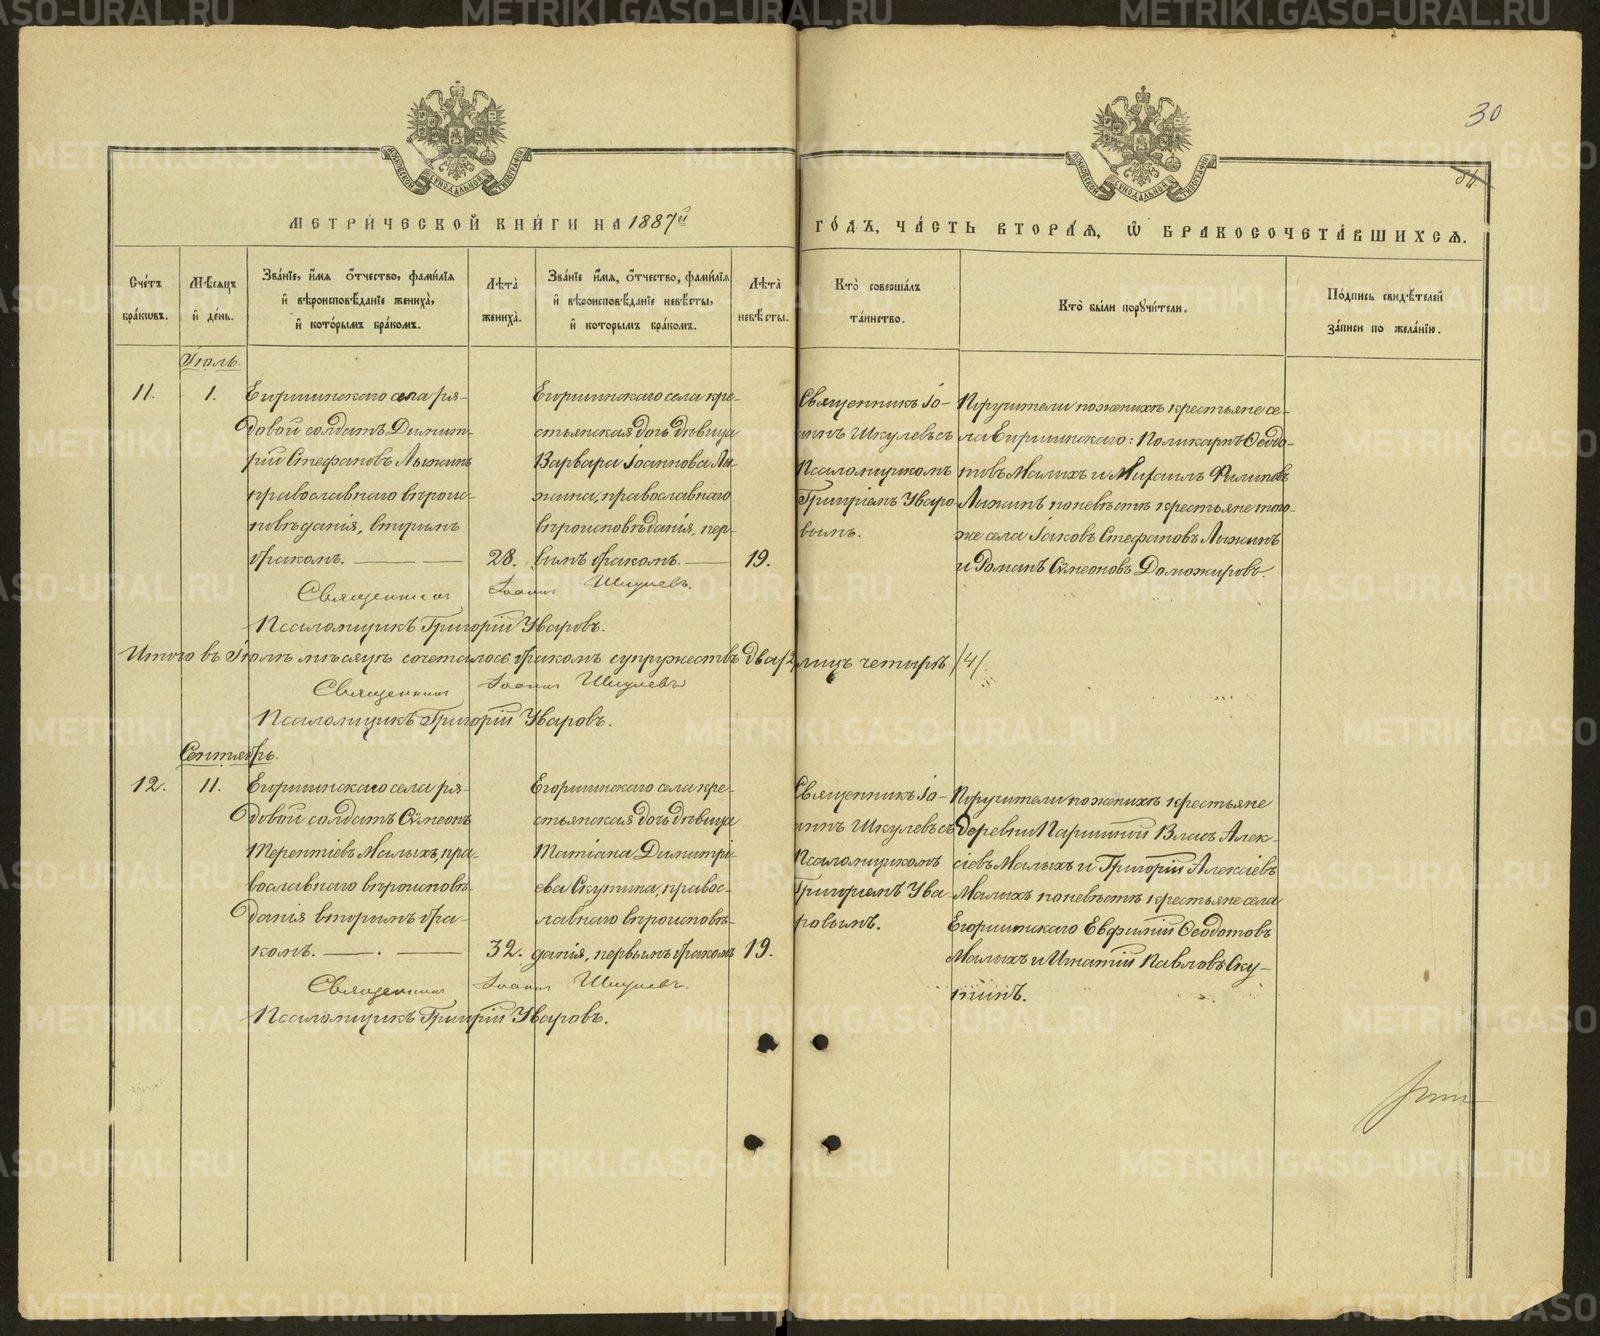 30
МОСКОВСКОЙ СѴНОДАЛЬНОЙ ТИПОГРАФІИ
МОСКОВСКОЙ СѴНОДАЛЬНОЙ ТИПОГРАФІИ
МЕТРИ́ЧЕСКОЙ КНИ́ГИ НА 1887й
ГО́ДЪ, ЧА́СТЬ ВТОРА́Я, Ѽ БРАКОСОЧЕТА́ВШИХСЯ.
Сче́тъ бра́кѡвъ.
Мѣ́сяцъ и҆ де́нь.
Зва́нїе, и҆́мя ѻ҆́тчество, фами́лїя и҆ вѣроисповѣ́данїе жениха̀, и҆ кото́рымъ бра́комъ.
Лѣ́та̀ жениха̀.
Зва́нїе и҆́мя, ѻ҆́тчество, фами́лїя и҆ вѣроисповѣ́данїе невѣ́сты, и҆ которымъ бра́комъ.
Лѣ́та̀ невѣ́сты.
Кто̀ соверша́лъ та́инство.
Кто̀ были порꙋчи́тели.
По́дпись свидѣ́телей за́писи по жела́нїю.
Іюль.
11.
1.
Егоршинскаго села ря-
довой солдатъ Димит-
рій Стефановъ Лыжинъ
православнаго вѣроис-
повѣданія, вторымъ
бракомъ.
28.
Егоршинскаго села кре-
стьянская дочь дѣвица
Варвара Іоаннова Лы-
жина, православнаго
вѣроисповѣданія, пер-
вымъ бракомъ.
19.
Священникъ Іо-
аннъ Шкулевъ съ
Псаломщикомъ
Григоріемъ Уваро-
вымъ.
Поручители по женихѣ крестьяне се-
ла Егоршинскаго: Поликарпъ Ѳеодо-
товъ Малыхъ и Михаилъ Филиповъ
Лыжинъ по невѣстѣ крестьяне того-
же села Іаковъ Стефановъ Лыжинъ
и Романъ Сѵмеоновъ Доможировъ.
Священникъ Іоаннъ Шкулевъ.
Псаломщикъ Григорій Уваровъ.
Итого въ Іюлѣ мѣсяцѣ сочеталось бракомъ супружествъ два /2/ лицъ четыре /4/.
Священникъ Іоаннъ Шкулевъ
Псаломщикъ Григорій Уваровъ.
Сентябрь.
12.
11.
Егоршинскаго села ря-
довой солдатъ Сѵмеонъ
Терентіевъ Малыхъ, пра-
вославнаго вѣроисповѣ-
данія вторымъ бра-
комъ.
32.
Егоршинскаго села кре-
стьянская дочь дѣвица
Татіана Димитрі-
ева Скутина, правос-
лавнаго вѣроисповѣ-
данія, первымъ бракомъ
19.
Священникъ Іо-
аннъ Шкулевъ съ
Псаломщикомъ
Григоріемъ Ува-
ровымъ.
Поручители по женихѣ крестьяне
деревни Паршиной Власъ Алек-
сіевъ Малыхъ и Григорій Алексіевъ
Малыхъ по невѣстѣ крестьяне села
Егоршинскаго Евфимій Ѳеодотовъ
Малыхъ и Игнатій Павловъ Ску-
тинъ.
Священникъ Іоаннъ Шкулевъ.
Псаломщикъ Григорій Уваровъ.
METRIKI.GASO-URAL.RU